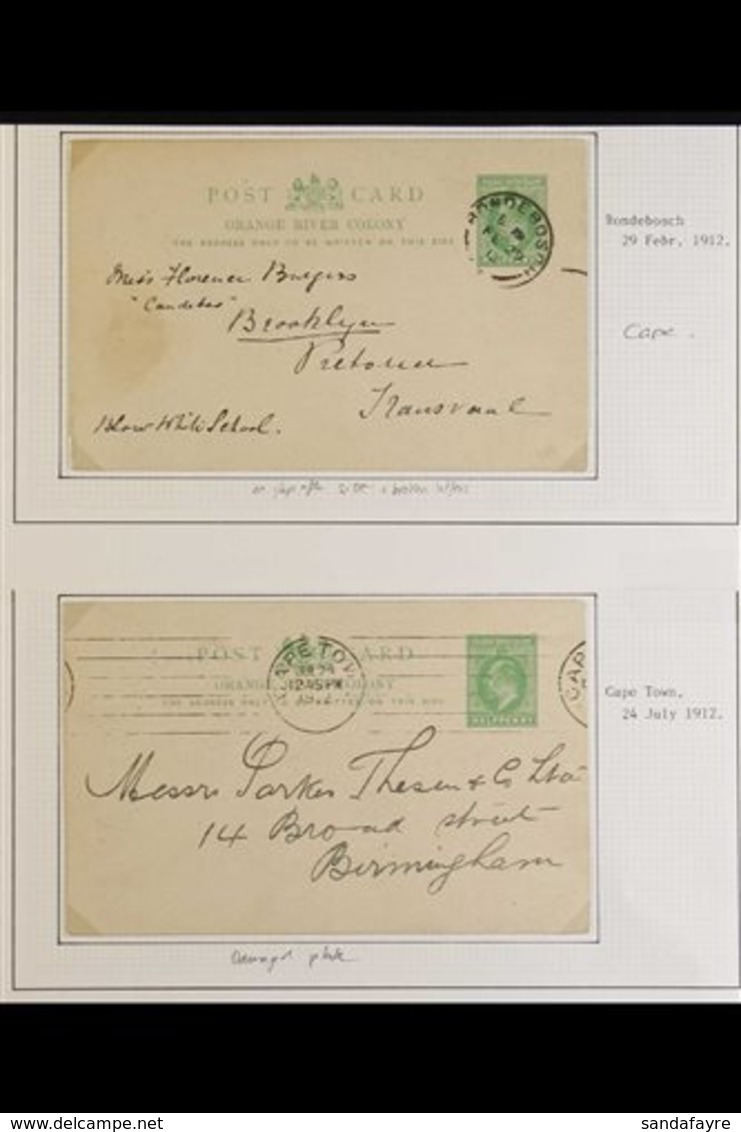 POST CARD
ORANGE RIVER COLONY
THE ADDRESS ONLY TO BE WRITTEN ON THIS SIDE
RONDEBOSCH
Miss Florence Burgers
Brooklyn
Pretoria
Transvaal
School.
Rondebosch
29 Febr. 1912.
Cape.
POST CARD
ORANGE RIVER COLONY
THE ADDRESS ONLY TO BE WRITTEN ON THIS SIDE
CAPE TOWN
12 45 PM
HALFPENNY
CAP
Messrs Parkes Thesen & Co Ltd
14 Broad street
Birmingham
Cape Town.
24 July 1912.
plate
sandafayre